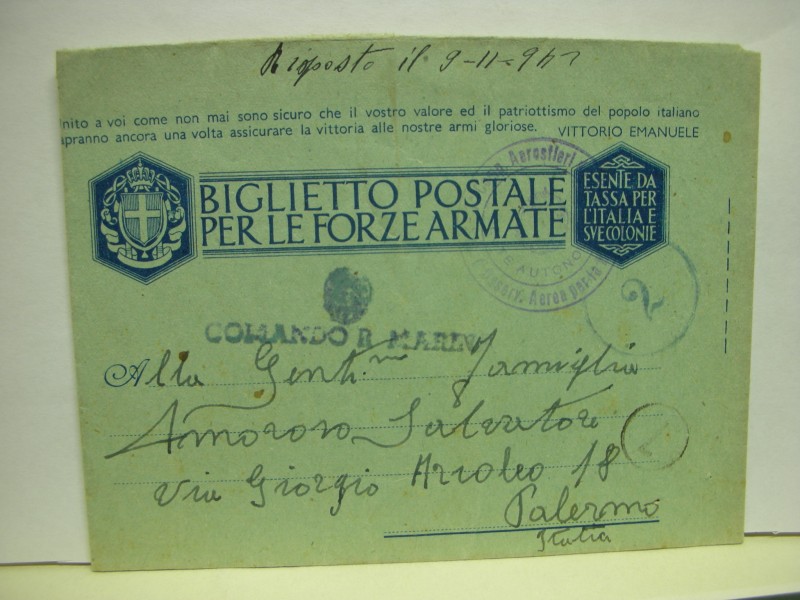 Risposto il 9-11-942
nito a voi come non mai sono sicuro che il vostro valore ed il patriottismo del popolo italiano
apranno ancora una volta assicurare la vittoria alle nostre armi gloriose. VITTORIO EMANUELE
BIGLIETTO POSTALE
PER LE FORZE ARMATE
ESENTE DA
TASSA PER
L'ITALIA E
SVE COLONIE
Aerostieri
AUTONO
Aerea
2
COMANDO R. MARIN
Alla Gent.ma Famiglia
Amoroso Salvatore
Via Giorgio Arcoleo 18
Palermo
Italia